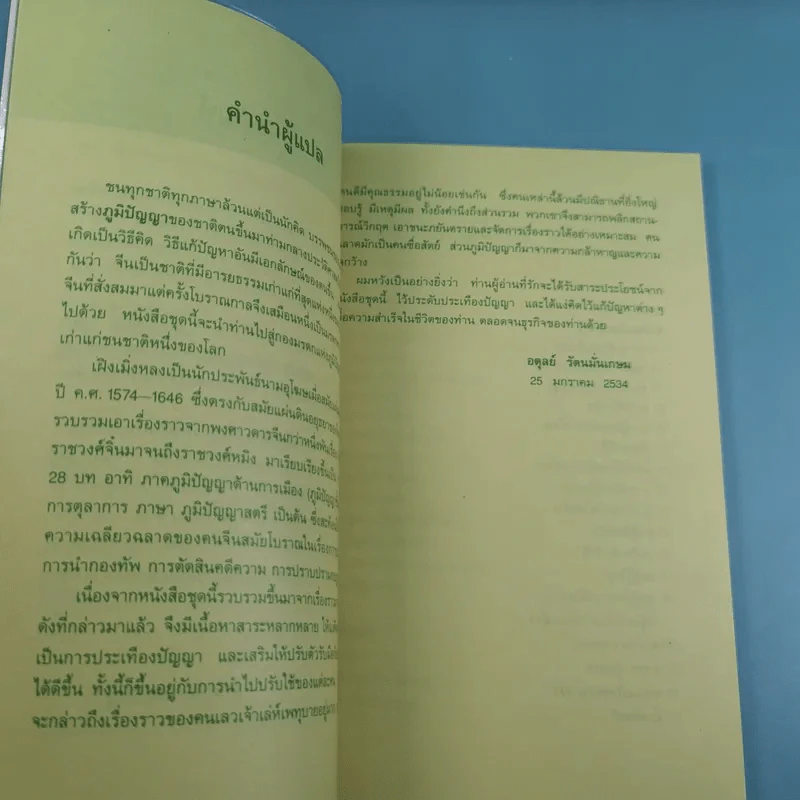 คำนำผู้แปล
ชนทุกชาติทุกภาษาล้วนแต่เป็นนักคิด บรรพชน
สร้างภูมิปัญญาของชาติตนขึ้นมาท่ามกลางประวัติศาสตร์
เกิดเป็นวิธีคิด วิธีแก้ปัญหาอันมีเอกลักษณ์ของตนขึ้น
กันว่า จีนเป็นชาติที่มีอารยธรรมเก่าแก่ที่สุดแห่งหนึ่ง
จีนที่สั่งสมมาแต่ครั้งโบราณกาลจึงเสมือนหนึ่งเป็น
ไปด้วย หนังสือชุดนี้จะนำท่านไปสู่กองมรดกแห่งภูมิปัญญา
เก่าแก่ชนชาติหนึ่งของโลก
เฝิงเมิ่งหลงเป็นนักประพันธ์นามอุโฆษเมื่อสมัย
ปี ค.ศ. 1574—1646 ซึ่งตรงกับสมัยแผ่นดินอยุธยา
รวบรวมเอาเรื่องราวจากพงศาวดารจีนกว่าหนึ่งพันเรื่อง
ราชวงศ์จิ้นมาจนถึงราชวงศ์หมิง มาเรียบเรียงขึ้นเป็น
28 บท อาทิ ภาคภูมิปัญญาด้านการเมือง (ภูมิปัญญา
การตุลาการ ภาษา ภูมิปัญญาสตรี เป็นต้น ซึ่งสะท้อน
ความเฉลียวฉลาดของคนจีนสมัยโบราณในเรื่อง
การนำกองทัพ การตัดสินคดีความ การปราบปราม
เนื่องจากหนังสือชุดนี้รวบรวมขึ้นมาจากเรื่องราว
ดังที่กล่าวมาแล้ว จึงมีเนื้อหาสาระหลากหลาย ให้
เป็นการประเทืองปัญญา และเสริมให้ปรับตัวรับ
ได้ดีขึ้น ทั้งนี้ก็ขึ้นอยู่กับการนำไปปรับใช้ของแต่ละ
จะกล่าวถึงเรื่องราวของคนเลวเจ้าเล่ห์เพทุบายอยู่
คนดีมีคุณธรรมอยู่ไม่น้อยเช่นกัน ซึ่งคนเหล่านี้ล้วนมีปณิธานที่ยิ่งใหญ่
รอบรู้ มีเหตุมีผล ทั้งยังคำนึงถึงส่วนรวม พวกเขาจึงสามารถพลิกสถาน-
การณ์วิกฤต เอาชนะภยันตรายและจัดการเรื่องราวได้อย่างเหมาะสม คน
ฉลาดมักเป็นคนซื่อสัตย์ ส่วนภูมิปัญญาก็มาจากความกล้าหาญและความ
ใจกว้าง
ผมหวังเป็นอย่างยิ่งว่า ท่านผู้อ่านที่รักจะได้รับสาระประโยชน์จาก
หนังสือชุดนี้ ไว้ประดับประเทืองปัญญา และได้แง่คิดไว้แก้ปัญหาต่าง ๆ
เพื่อความสำเร็จในชีวิตของท่าน ตลอดจนธุรกิจของท่านด้วย
อดุลย์ รัตนมั่นเกษม
25 มกราคม 2534